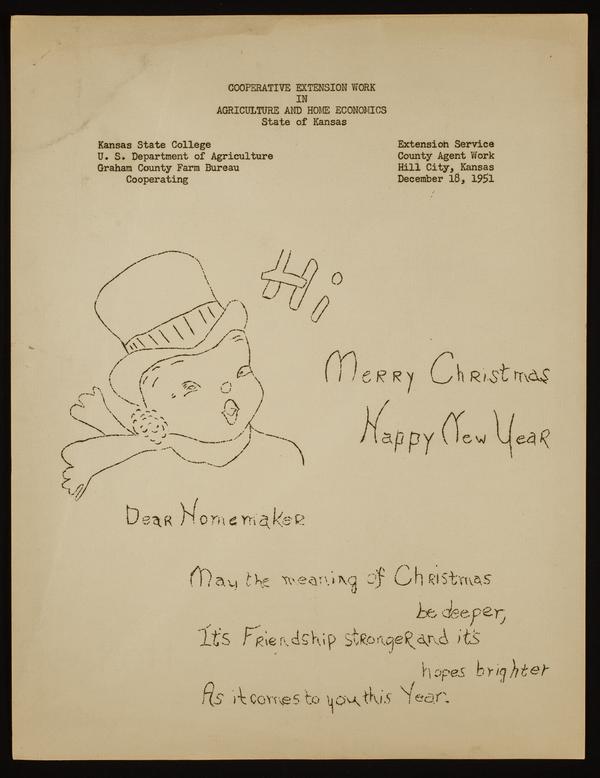 COOPERATIVE EXTENSION WORK
IN
AGRICULTURE AND HOME ECONOMICS
State of Kansas
Kansas State College
U. S. Department of Agriculture
Graham County Farm Bureau
Cooperating
Extension Service
County Agent Work
Hill City, Kansas
December 18, 1951
Hi
Merry Christmas
Happy New Year
Dear Homemaker
May the meaning of Christmas
be deeper,
It's Friendship stronger and it's
hopes brighter
As it comes to you this Year.